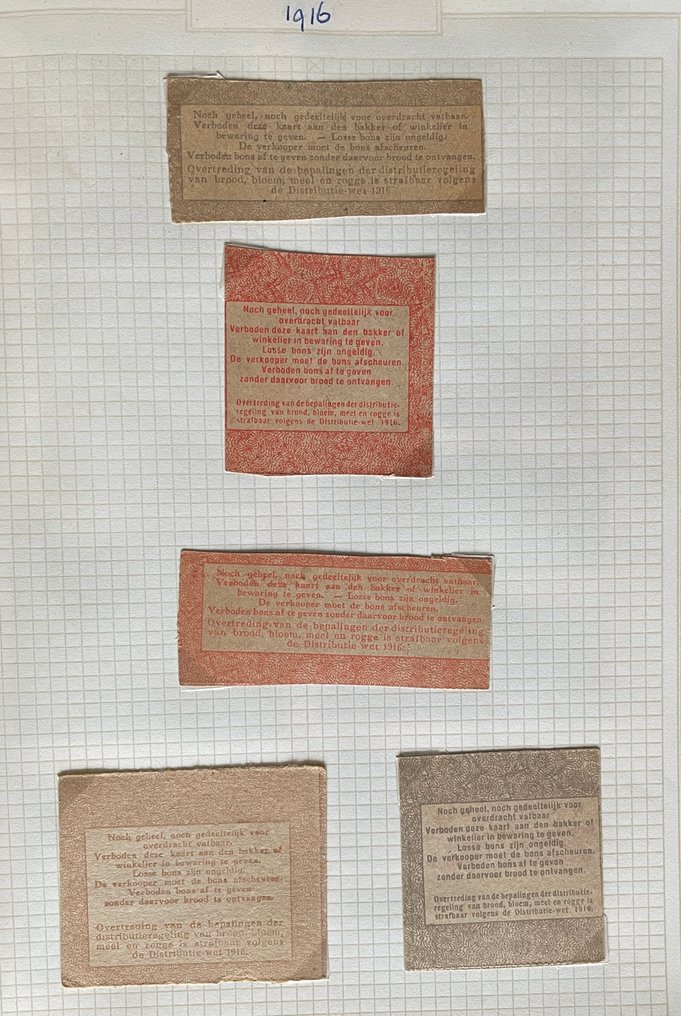 1916
Noch geheel, noch gedeeltelijk voor overdracht vatbaar.
Verboden deze kaart aan den bakker of winkelier in
bewaring te geven. — Losse bons zijn ongeldig.
De verkooper moet de bons afscheuren.
Verboden bons af te geven zonder daarvoor brood te ontvangen.
Overtreding van de bepalingen der distributieregeling
van brood, bloem, meel en rogge is strafbaar volgens
de Distributie-wet 1916.
Noch geheel, noch gedeeltelijk voor
overdracht vatbaar
Verboden deze kaart aan den bakker of
winkelier in bewaring te geven.
Losse bons zijn ongeldig.
De verkooper moet de bons afscheuren.
Verboden bons af te geven
zonder daarvoor brood te ontvangen.
Overtreding van de bepalingen der distributie-
regeling van brood, bloem, meel en rogge is
strafbaar volgens de Distributie-wet 1916.
Noch geheel, noch gedeeltelijk voor overdracht vatbaar.
Verboden deze kaart aan den bakker of winkelier in
bewaring te geven. — Losse bons zijn ongeldig.
De verkooper moet de bons afscheuren.
Verboden bons af te geven zonder daarvoor brood te ontvangen.
Overtreding van de bepalingen der distributieregeling
van brood, bloem, meel en rogge is strafbaar volgens
de Distributie-wet 1916.
Noch geheel, noch gedeeltelijk voor
overdracht vatbaar.
Verboden deze kaart aan den bakker of
winkelier in bewaring te geven.
Losse bons zijn ongeldig.
De verkooper moet de bons afscheuren.
Verboden bons af te geven
zonder daarvoor brood te ontvangen.
Overtreding van de bepalingen der
distributieregeling van brood, bloem,
meel en rogge is strafbaar volgens
de Distributie-wet 1916.
Noch geheel, noch gedeeltelijk voor
overdracht vatbaar
Verboden deze kaart aan den bakker of
winkelier in bewaring te geven.
Losse bons zijn ongeldig.
De verkooper moet de bons afscheuren.
Verboden bons af te geven
zonder daarvoor brood te ontvangen.
Overtreding van de bepalingen der distributie-
regeling van brood, bloem, meel en rogge is
strafbaar volgens de Distributie-wet 1916.